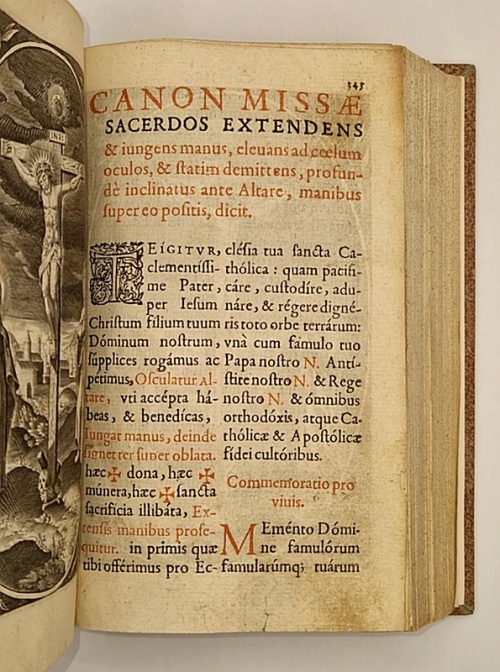 INRI
345
CANON MISSÆ
SACERDOS EXTENDENS
& iungens manus, eleuans ad cœlum
oculos, & statim demittens, profun-
dè inclinatus ante Altare, manibus
super eo positis, dicit.
TEÍGITVR,
clementíssi-
me Pater,
per Iesum
Christum filium tuum
Dóminum nostrum,
súpplices rogámus ac
pétimus, Osculatur Al-
tare, vti accépta há-
beas, & benedícas,
Iungat manus, deinde
signet ter super oblata.
hæc ✠ dona, hæc ✠
múnera, hæc ✠ sancta
sacrifícia illibáta, Ex-
tensis manibus prose-
quitur. in primis quæ
tibi offérimus pro Ec-
clésia tua sancta Ca-
thólica : quam pacifi-
cáre, custodíre, adu-
náre, & régere digné-
ris toto orbe terrárum:
vnà cum famulo tuo
Papa nostro N. Antí-
stite nostro N. & Rege
nostro N. & ómnibus
orthodóxis, atque Ca-
thólicæ & Apostólicæ
fídei cultóribus.
Commemoratio pro
viuis.
MEménto Dómi-
ne famulórum
famularúmq; tuárum